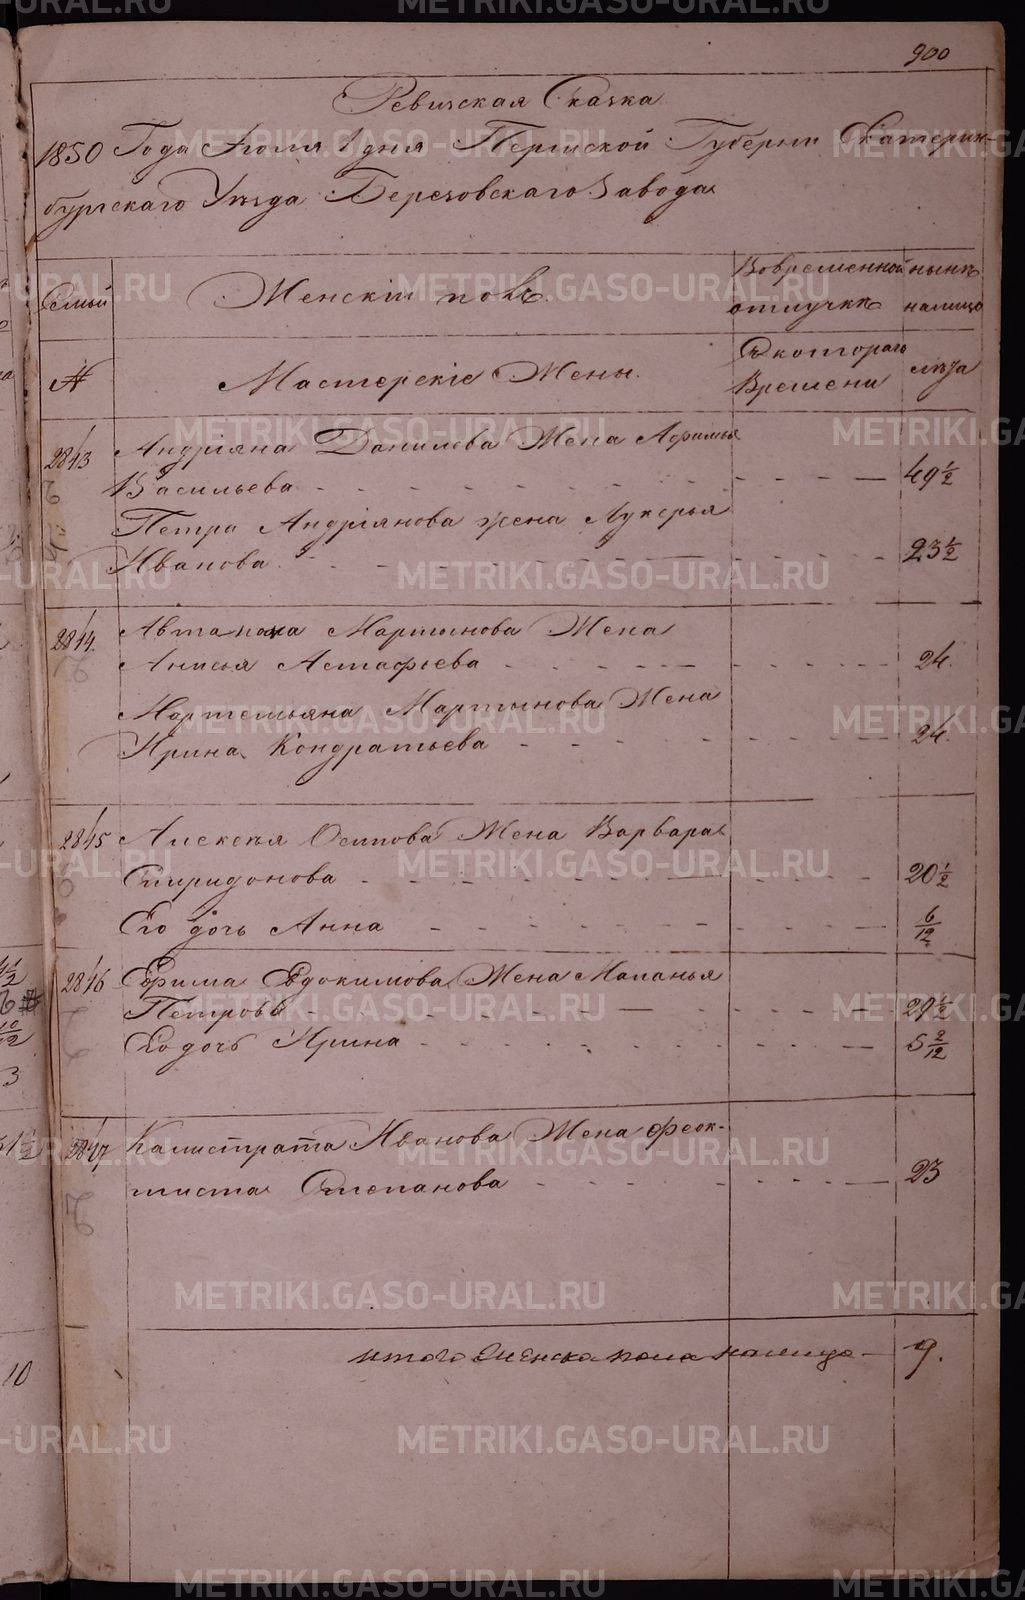 900
Ревизская Сказка
1850 Года Июля 1 дня Пермской Губернии Екатерин-
бургскаго Уѣзда Березовскаго Завода
Семьи
Женскій полъ.
Вовременной
отлучкѣ
нынѣ
налицо
№
Мастерскіе Жены.
Съ котораго
Времени
лѣта
2843
Андріяна Данилова Жена Афимья
Васильева
49 1/2
Петра Андріянова жена Лукерья
Иванова
23 1/2
2844.
Мартынова Жена
Анисья Астафьева
24.
Мартемьяна Мартынова Жена
Ирина Кондратьева
24.
2845
Алексѣя Осипова Жена Варвара
Спиридонова
20 1/2
Его дочь Анна
6/12
2846
Ефима Евдокимова Жена Маланья
Петрова
29 1/2
Его дочь Ирина
5 2/12
2847
Калистрата Иванова Жена Феок-
тиста Степанова
23
итого женска пола налицо
9.
METRIKI.GASO-URAL.RU